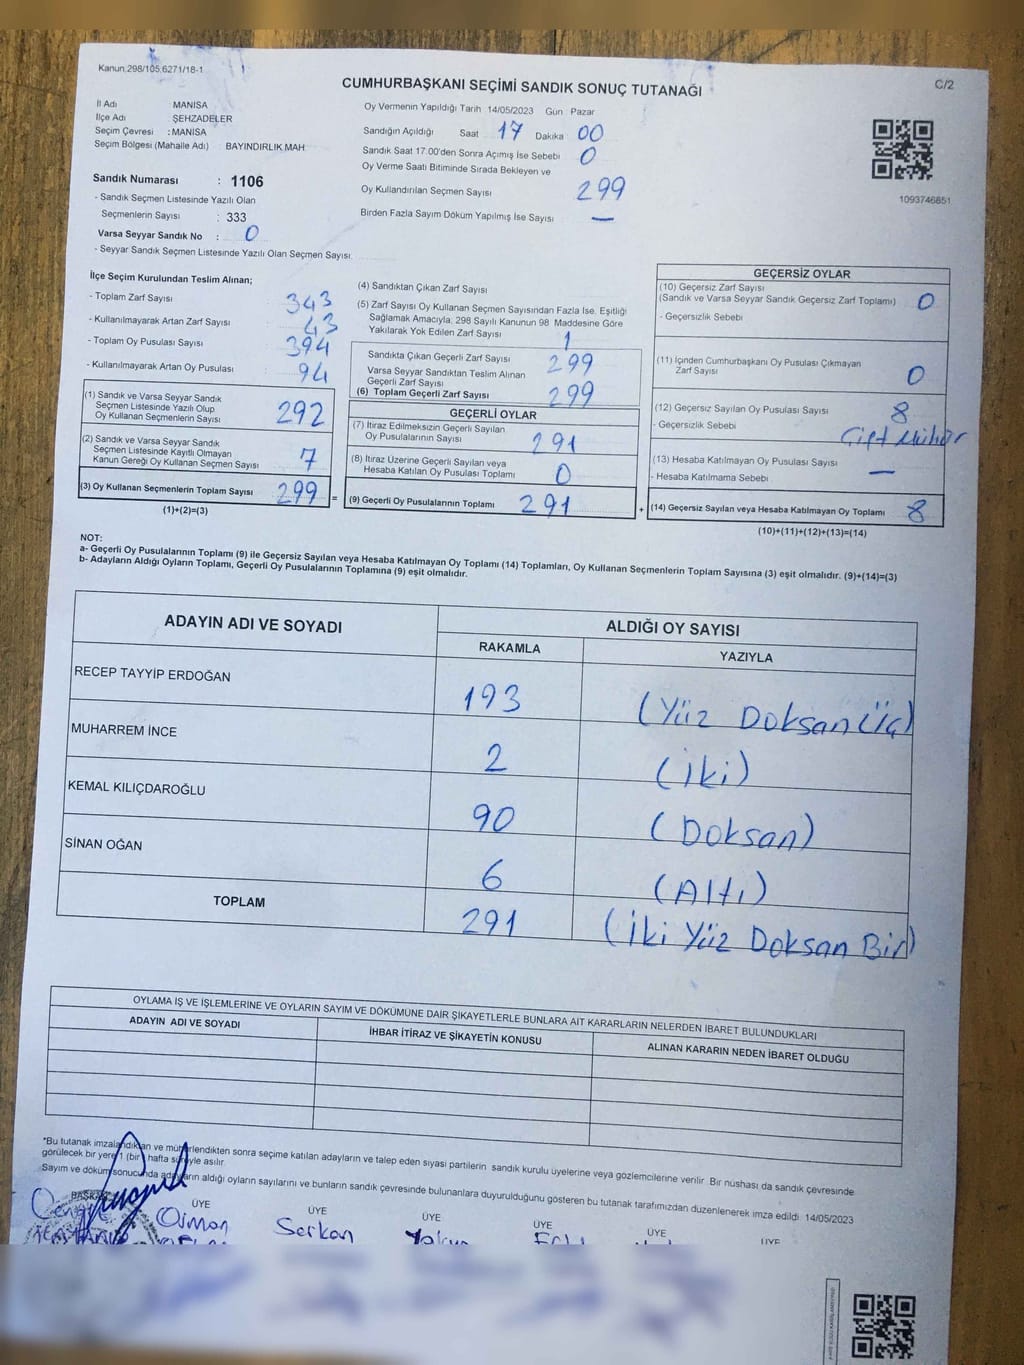 Kanun.298/105.6271/18-1
C/2
CUMHURBAŞKANI SEÇİMİ SANDIK SONUÇ TUTANAĞI
İl Adı : MANİSA
İlçe Adı : ŞEHZADELER
Seçim Çevresi : MANİSA
Seçim Bölgesi (Mahalle Adı) BAYINDIRLIK MAH
Oy Vermenin Yapıldığı Tarih 14/05/2023 Gün Pazar
Sandığın Açıldığı Saat 17 Dakika 00
Sandık Saat 17.00'den Sonra Açılmış İse Sebebi 0
Oy Verme Saati Bitiminde Sırada Bekleyen ve
Oy Kullandırılan Seçmen Sayısı 299
Birden Fazla Sayım Döküm Yapılmış İse Sayısı —
1093746851
Sandık Numarası : 1106
- Sandık Seçmen Listesinde Yazılı Olan
Seçmenlerin Sayısı : 333
Varsa Seyyar Sandık No : 0
- Seyyar Sandık Seçmen Listesinde Yazılı Olan Seçmen Sayısı:
İlçe Seçim Kurulundan Teslim Alınan;
- Toplam Zarf Sayısı 343
- Kullanılmayarak Artan Zarf Sayısı 43
- Toplam Oy Pusulası Sayısı 394
- Kullanılmayarak Artan Oy Pusulası 94
(1) Sandık ve Varsa Seyyar Sandık
Seçmen Listesinde Yazılı Olup
Oy Kullanan Seçmenlerin Sayısı 292
(2) Sandık ve Varsa Seyyar Sandık
Seçmen Listesinde Kayıtlı Olmayan
Kanun Gereği Oy Kullanan Seçmen Sayısı 7
(3) Oy Kullanan Seçmenlerin Toplam Sayısı 299 =
(1)+(2)=(3)
(4) Sandıktan Çıkan Zarf Sayısı
(5) Zarf Sayısı Oy Kullanan Seçmen Sayısından Fazla İse, Eşitliği
Sağlamak Amacıyla, 298 Sayılı Kanunun 98 Maddesine Göre
Yakılarak Yok Edilen Zarf Sayısı 1
Sandıkta Çıkan Geçerli Zarf Sayısı 299
Varsa Seyyar Sandıktan Teslim Alınan
Geçerli Zarf Sayısı
(6) Toplam Geçerli Zarf Sayısı 299
GEÇERLİ OYLAR
(7) İtiraz Edilmeksizin Geçerli Sayılan
Oy Pusulalarının Sayısı 291
(8) İtiraz Üzerine Geçerli Sayılan veya
Hesaba Katılan Oy Pusulası Toplamı 0
(9) Geçerli Oy Pusulalarının Toplamı 291 +
GEÇERSİZ OYLAR
(10) Geçersiz Zarf Sayısı
(Sandık ve Varsa Seyyar Sandık Geçersiz Zarf Toplamı) 0
- Geçersizlik Sebebi
(11) İçinden Cumhurbaşkanı Oy Pusulası Çıkmayan
Zarf Sayısı 0
(12) Geçersiz Sayılan Oy Pusulası Sayısı 8
- Geçersizlik Sebebi Çift Mühür
(13) Hesaba Katılmayan Oy Pusulası Sayısı —
- Hesaba Katılmama Sebebi
(14) Geçersiz Sayılan veya Hesaba Katılmayan Oy Toplamı 8
(10)+(11)+(12)+(13)=(14)
NOT:
a- Geçerli Oy Pusulalarının Toplamı (9) ile Geçersiz Sayılan veya Hesaba Katılmayan Oy Toplamı (14) Toplamları, Oy Kullanan Seçmenlerin Toplam Sayısına (3) eşit olmalıdır. (9)+(14)=(3)
b- Adayların Aldığı Oyların Toplamı, Geçerli Oy Pusulalarının Toplamına (9) eşit olmalıdır.
ADAYIN ADI VE SOYADI ALDIĞI OY SAYISI
RAKAMLA YAZIYLA
RECEP TAYYİP ERDOĞAN 193 (Yüz Doksan Üç)
MUHARREM İNCE 2 (iki)
KEMAL KILIÇDAROĞLU 90 (Doksan)
SİNAN OĞAN 6 (Altı)
TOPLAM 291 (İki Yüz Doksan Bir)
OYLAMA İŞ VE İŞLEMLERİNE VE OYLARIN SAYIM VE DÖKÜMÜNE DAİR ŞİKAYETLERLE BUNLARA AİT KARARLARIN NELERDEN İBARET BULUNDUKLARI
ADAYIN ADI VE SOYADI İHBAR İTİRAZ VE ŞİKAYETİN KONUSU ALINAN KARARIN NEDEN İBARET OLDUĞU
*Bu tutanak imzalandıktan ve mühürlendikten sonra seçime katılan adayların ve talep eden siyasi partilerin sandık kurulu üyelerine veya gözlemcilerine verilir. Bir nüshası da sandık çevresinde
görülecek bir yere 1 (bir) hafta süreyle asılır.
Sayım ve döküm sonucunda adayların aldığı oyların sayılarını ve bunların sandık çevresinde bulunanlara duyurulduğunu gösteren bu tutanak tarafımızdan düzenlenerek imza edildi. 14/05/2023
BAŞKAN ÜYE ÜYE ÜYE ÜYE ÜYE ÜYE
Osman Serkan